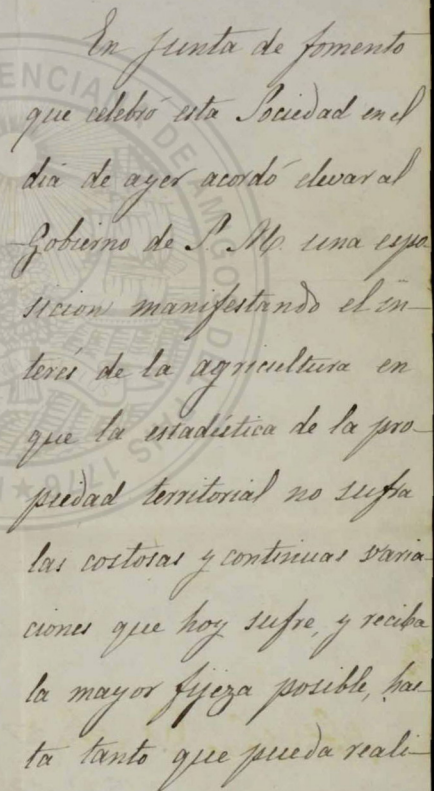 En Junta de fomento
que celebró esta Sociedad en el
dia de ayer acordó elevar al
Gobierno de S. M. una expo
sicion manifestando el in-
terés de la agricultura en
que la estadística de la pro-
piedad territorial no sufra
las costosas y continuas varia-
ciones que hoy sufre, y reciba
la mayor fijeza posible, has-
ta tanto que pueda reali-